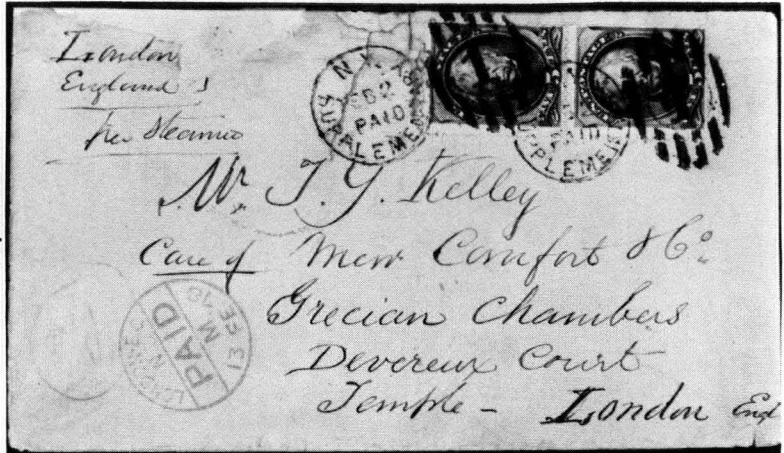 London
England
per Steamer
N.Y.
PAID
SUPPLEMENTARY
Mr. T. G. Kelley
Care of Mew Comfort & Co.
Grecian Chambers
Devereux Court
Temple - London Engd
LONDON E.C
PAID
13 FE